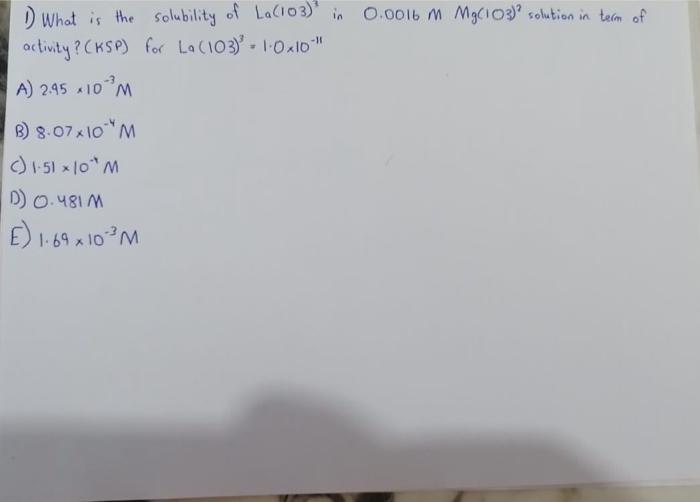 1) What is the solubility of La(IO3)³ in 0.0016 M Mg(IO3)² solution in term of
activity? (KSP) for La(IO3)³ = 1.0x10⁻¹¹
A) 2.95 x10⁻³M
B) 8.07x10⁻⁴M
C) 1.51 x10⁻⁴ M
D) 0.481 M
E) 1.69 x 10⁻³M